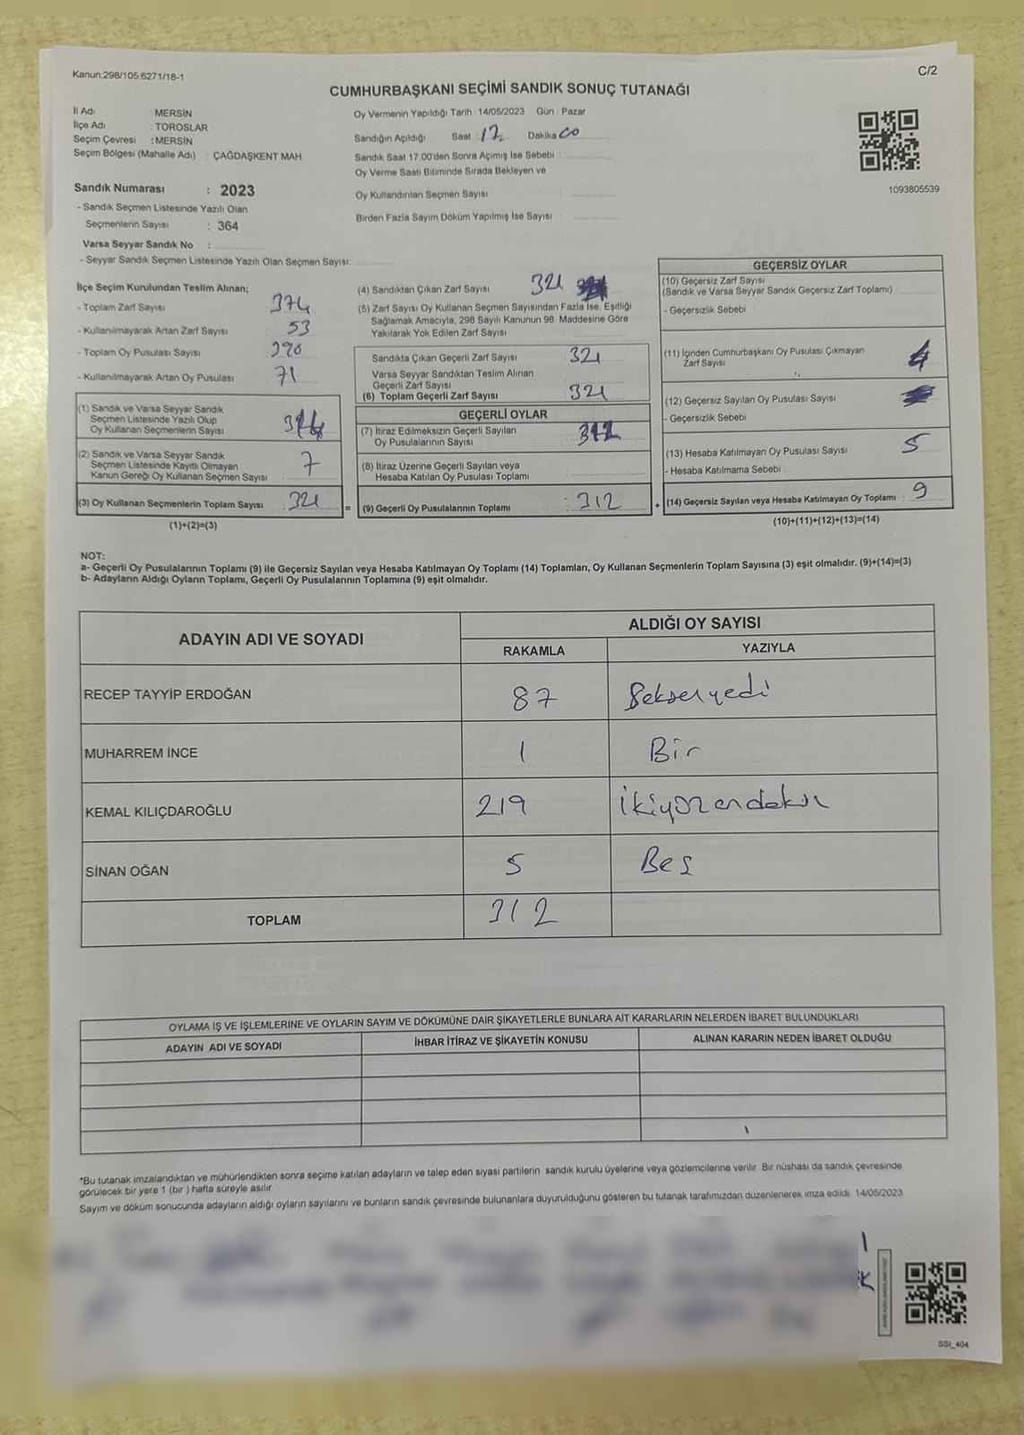 Kanun:298/105:6271/18-1
C/2
CUMHURBAŞKANI SEÇİMİ SANDIK SONUÇ TUTANAĞI
İl Adı : MERSİN
İlçe Adı : TOROSLAR
Seçim Çevresi : MERSİN
Seçim Bölgesi (Mahalle Adı) : ÇAĞDAŞKENT MAH
Sandık Numarası : 2023
- Sandık Seçmen Listesinde Yazılı Olan
Seçmenlerin Sayısı : 364
Varsa Seyyar Sandık No :
- Seyyar Sandık Seçmen Listesinde Yazılı Olan Seçmen Sayısı:
Oy Vermenin Yapıldığı Tarih: 14/05/2023 Gün : Pazar
Sandığın Açıldığı Saat 17 Dakika 00
Sandık Saat 17.00'den Sonra Açımış İse Sebebi :
Oy Verme Saati Bitiminde Sırada Bekleyen ve
Oy Kullandırılan Seçmen Sayısı
Birden Fazla Sayım Döküm Yapılmış İse Sayısı
1093805539
İlçe Seçim Kurulundan Teslim Alınan;
- Toplam Zarf Sayısı 374
- Kullanılmayarak Artan Zarf Sayısı 53
- Toplam Oy Pusulası Sayısı 390
- Kullanılmayarak Artan Oy Pusulası 71
(1) Sandık ve Varsa Seyyar Sandık
Seçmen Listesinde Yazılı Olup
Oy Kullanan Seçmenlerin Sayısı
(2) Sandık ve Varsa Seyyar Sandık
Seçmen Listesinde Kayıtlı Olmayan
Kanun Gereği Oy Kullanan Seçmen Sayısı 7
(3) Oy Kullanan Seçmenlerin Toplam Sayısı : 321
(1)+(2)=(3)
(4) Sandıktan Çıkan Zarf Sayısı 321
(5) Zarf Sayısı Oy Kullanan Seçmen Sayısından Fazla İse, Eşitliği
Sağlamak Amacıyla, 298 Sayılı Kanunun 98. Maddesine Göre
Yakılarak Yok Edilen Zarf Sayısı
Sandıkta Çıkan Geçerli Zarf Sayısı 321
Varsa Seyyar Sandıktan Teslim Alınan
Geçerli Zarf Sayısı
(6) Toplam Geçerli Zarf Sayısı 321
GEÇERLİ OYLAR
(7) İtiraz Edilmeksizin Geçerli Sayılan
Oy Pusulalarının Sayısı 312
(8) İtiraz Üzerine Geçerli Sayılan veya
Hesaba Katılan Oy Pusulası Toplamı
= (9) Geçerli Oy Pusulalarının Toplamı : 312
GEÇERSİZ OYLAR
(10) Geçersiz Zarf Sayısı
(Sandık ve Varsa Seyyar Sandık Geçersiz Zarf Toplamı)
- Geçersizlik Sebebi
(11) İçinden Cumhurbaşkanı Oy Pusulası Çıkmayan
Zarf Sayısı 4
(12) Geçersiz Sayılan Oy Pusulası Sayısı
- Geçersizlik Sebebi
(13) Hesaba Katılmayan Oy Pusulası Sayısı 5
- Hesaba Katılmama Sebebi
+ (14) Geçersiz Sayılan veya Hesaba Katılmayan Oy Toplamı : 9
(10)+(11)+(12)+(13)=(14)
NOT:
a- Geçerli Oy Pusulalarının Toplamı (9) ile Geçersiz Sayılan veya Hesaba Katılmayan Oy Toplamı (14) Toplamları, Oy Kullanan Seçmenlerin Toplam Sayısına (3) eşit olmalıdır. (9)+(14)=(3)
b- Adayların Aldığı Oyların Toplamı, Geçerli Oy Pusulalarının Toplamına (9) eşit olmalıdır.
ADAYIN ADI VE SOYADI
ALDIĞI OY SAYISI
RAKAMLA YAZIYLA
RECEP TAYYİP ERDOĞAN 87 Seksenyedi
MUHARREM İNCE 1 Bir
KEMAL KILIÇDAROĞLU 219 İkiyüzondokuz
SİNAN OĞAN 5 Beş
TOPLAM 312
OYLAMA İŞ VE İŞLEMLERİNE VE OYLARIN SAYIM VE DÖKÜMÜNE DAİR ŞİKAYETLERLE BUNLARA AİT KARARLARIN NELERDEN İBARET BULUNDUKLARI
ADAYIN ADI VE SOYADI İHBAR İTİRAZ VE ŞİKAYETİN KONUSU ALINAN KARARIN NEDEN İBARET OLDUĞU
*Bu tutanak imzalandıktan ve mühürlendikten sonra seçime katılan adayların ve talep eden siyasi partilerin sandık kurulu üyelerine veya gözlemcilerine verilir. Bir nüshası da sandık çevresinde
görülecek bir yere 1 (bir ) hafta süreyle asılır.
Sayım ve döküm sonucunda adayların aldığı oyların sayılarını ve bunların sandık çevresinde bulunanlara duyurulduğunu gösteren bu tutanak tarafımızdan düzenlenerek imza edildi. 14/05/2023
SSI_404